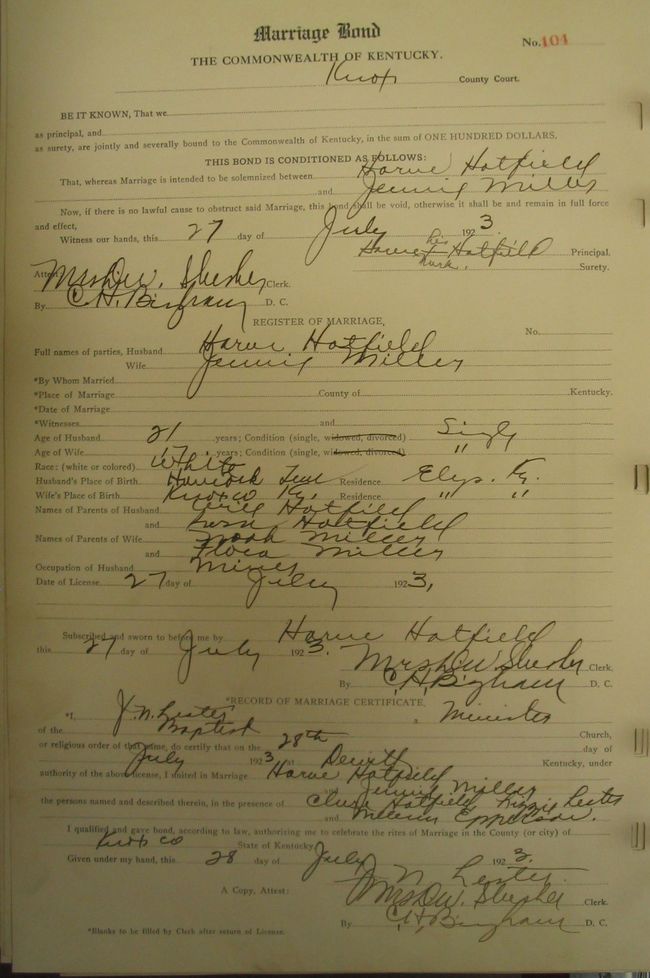 Marriage Bond
No. 101
THE COMMONWEALTH OF KENTUCKY.
Knox County Court.
BE IT KNOWN, That we
as principal, and
as surety, are jointly and severally bound to the Commonwealth of Kentucky, in the sum of ONE HUNDRED DOLLARS.
THIS BOND IS CONDITIONED AS FOLLOWS:
That, whereas Marriage is intended to be solemnized between Harve Hatfield
and Jennie Miller
Now, if there is no lawful cause to obstruct said Marriage, this bond shall be void, otherwise it shall be and remain in full force
and effect,
Witness our hands, this 27 day of July 1923.
Harve his mark Hatfield Principal.
Surety.
Attest Mrs. D.W. Slusher Clerk.
By C.H. Bingham D. C.
REGISTER OF MARRIAGE,
No.
Full names of parties, Husband Harve Hatfield
Wife Jennie Miller
*By Whom Married
*Place of Marriage County of Kentucky.
*Date of Marriage
*Witnesses and
Age of Husband 21 years; Condition (single, widowed, divorced) Single
Age of Wife 17 years; Condition (single, widowed, divorced) "
Race: (white or colored) White
Husband's Place of Birth Hancock Tenn Residence Elys. Ky.
Wife's Place of Birth Knox co Ky. Residence " "
Names of Parents of Husband Hatfield
and Hatfield
Names of Parents of Wife Noah Miller
and Flora Miller
Occupation of Husband Miner
Date of License 27 day of July 1923,
Subscribed and sworn to before me by Harve Hatfield
this 27 day of July 1923.
Mrs. D.W. Slusher Clerk.
By C.H. Bingham D. C.
*RECORD OF MARRIAGE CERTIFICATE,
*I, J.N. Lester a Minister
of the Baptist Church,
or religious order of that name, do certify that on the 28th day of
July 1923, at Dewitt Kentucky, under
authority of the above license, I united in Marriage Harve Hatfield
and Jennie Miller
the persons named and described therein, in the presence of Hatfield, Lizzie Lester
and
I qualified and gave bond, according to law, authorizing me to celebrate the rites of Marriage in the County (or city) of
Knox co State of Kentucky
Given under my hand, this 28 day of July 1923.
J N Lester.
A Copy, Attest: Mrs. D.W. Slusher Clerk.
By C.H. Bingham D. C.
*Blanks to be filled by Clerk after return of License.